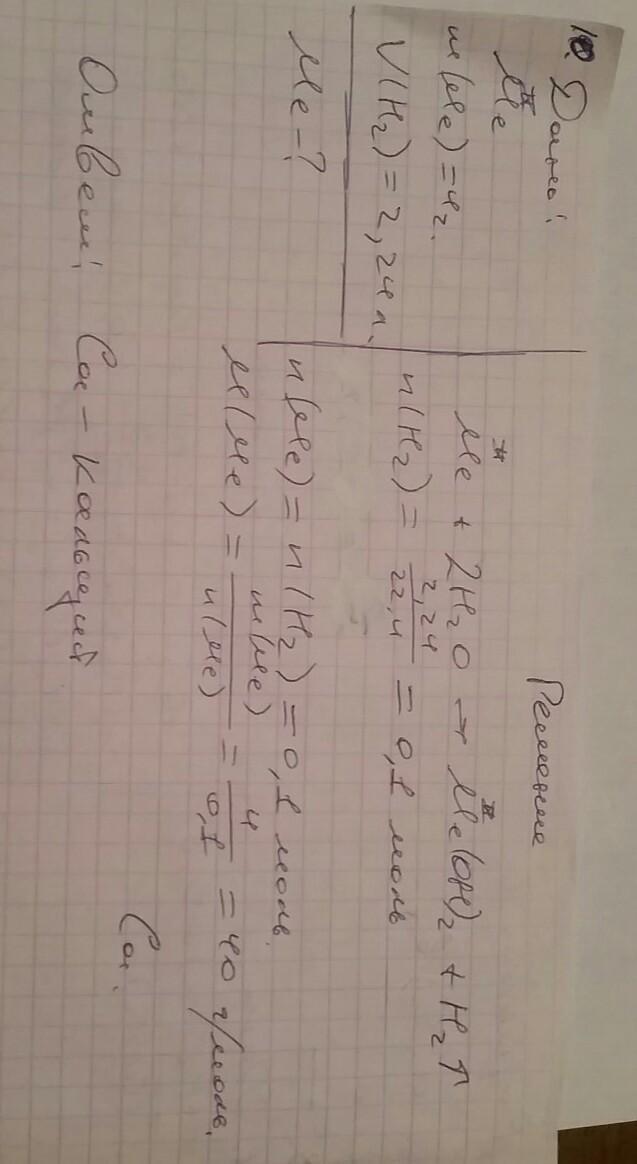 10. Дано:
Me^II
m(Me) = 4г.
V(H₂) = 2,24л.
Me - ?
Решение
Me^II + 2H₂O → Me^II(OH)₂ + H₂↑
n(H₂) = 2,24/22,4 = 0,1 моль
n(Me) = n(H₂) = 0,1 моль.
M(Me) = m(Me)/n(Me) = 4/0,1 = 40 г/моль.
Ca.
Ответ: Ca - Кальций